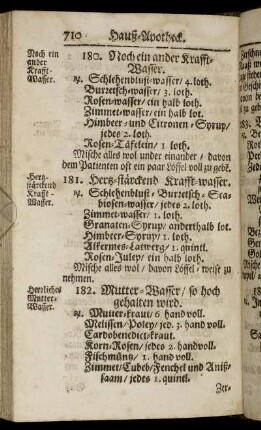 710 Hauß-Apotheck.
Noch ein
ander
Krafft-
Wasser.
180. Noch ein ander Krafft-
Wasser.
℞. Schlehenblust-wasser / 4. loth.
Burretsch-wasser / 3. loth.
Rosen-wasser / ein halb loth.
Zimmet-wasser / ein halb lot.
Himbeer- und Citronen-Syrup /
jedes 2. loth.
Rosen-Täfelein / 1. loth.
Mische alles wol under einander / davon
dem Patienten offt ein paar Löffel voll zu gebē.
Hertz-
stärckend
Krafft-
Wasser.
181. Hertz-stärckend Krafft-wasser.
℞. Schlehenblust- Burretsch- Sca-
biosen-wasser / jedes 2. loth.
Zimmet-wasser / 1. loth.
Granaten-Syrup / anderthalb lot.
Himbeer-Syrup / 1. loth.
Alkermes-Latwerg / 1. quintl.
Rosen-Julep / ein halb loth.
Mische alles wol / davon Löffel-weise zu
nehmen.
Herrliches
Mutter-
Wasser.
182. Mutter-Wasser / so hoch
gehalten wird.
℞. Mutterkraut / 6. hand voll.
Melissen / Poley / jed. 3. hand voll.
Cardobenedictkraut.
Korn-Rosen / jedes 2. hand voll.
Fischmüntz / 1. hand voll.
Zimmet / Cubeb / Fenchel und Aniß-
saam / jedes 1. quintl.
Zer-